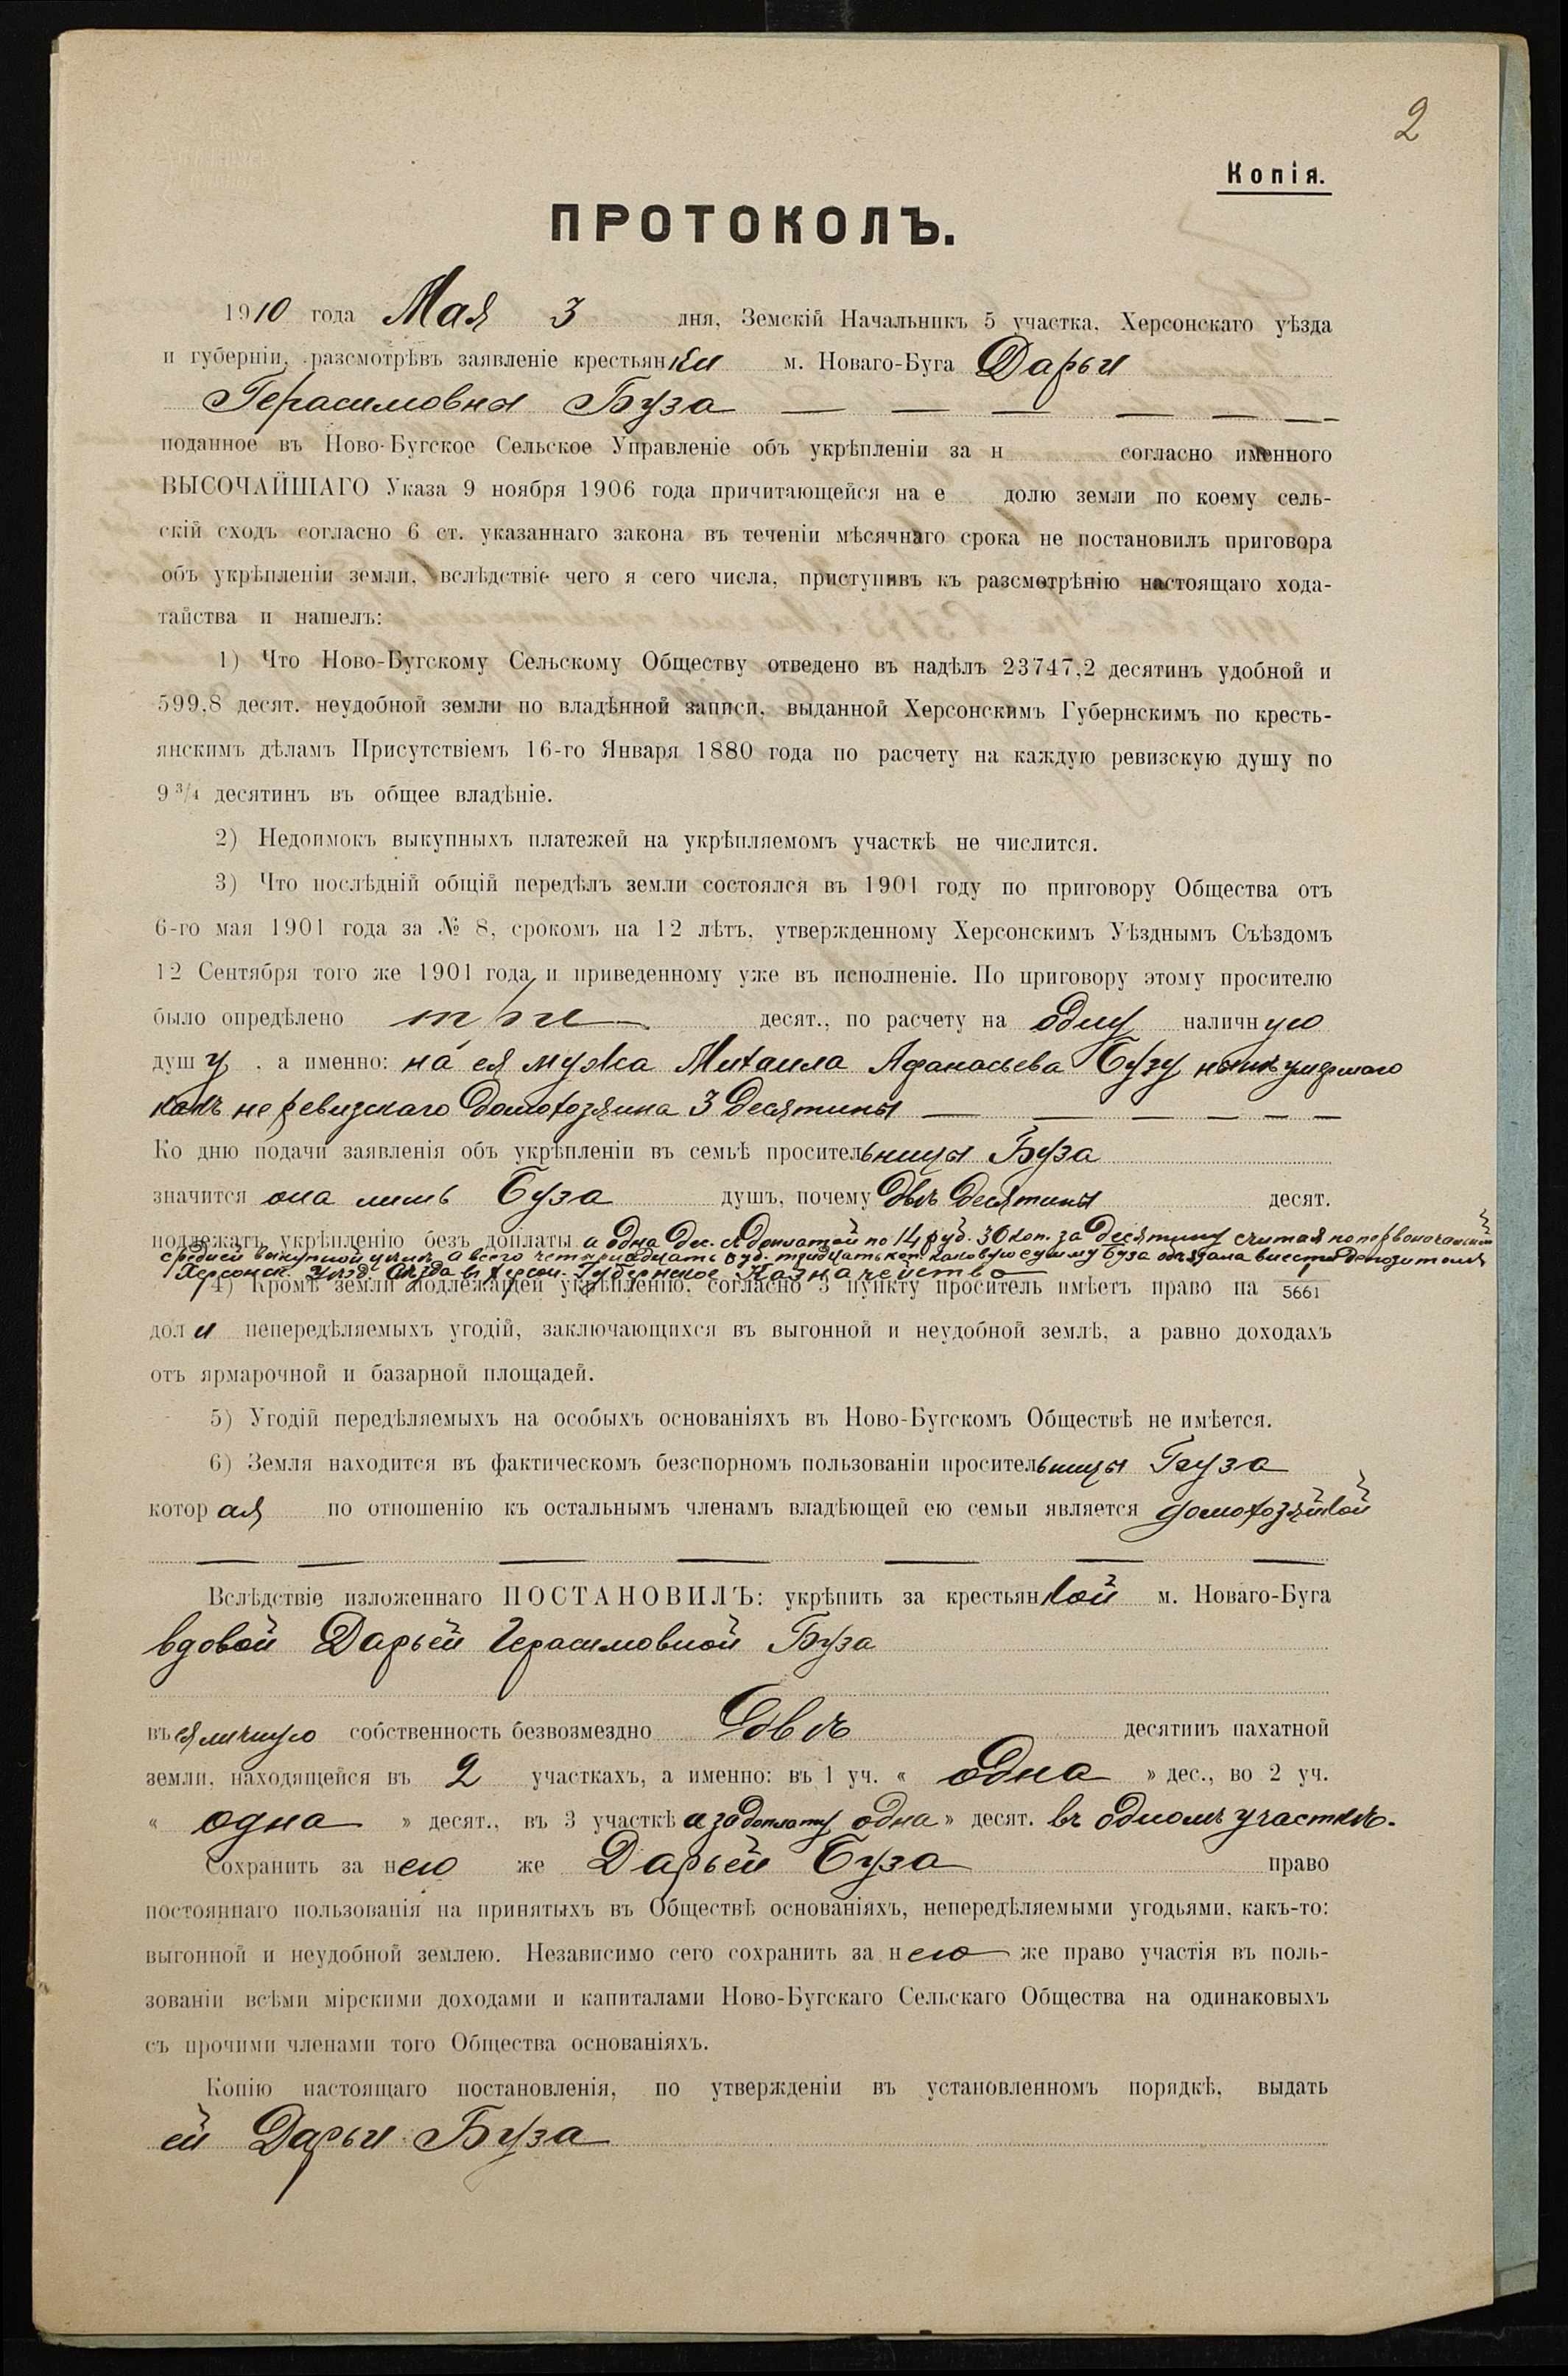 2
Копія.
ПРОТОКОЛЪ.
1910 года Мая 3 дня, Земскій Начальникъ 5 участка, Херсонскаго уѣзда
и губерніи, разсмотрѣвъ заявленіе крестьянки м. Новаго-Буга Дарьи
Герасимовны Буза
поданное въ Ново-Бугское Сельское Управленіе объ укрѣпленіи за н согласно именного
ВЫСОЧАЙШАГО Указа 9 ноября 1906 года причитающейся на е долю земли по коему сель-
скій сходъ согласно 6 ст. указаннаго закона въ теченіи мѣсячнаго срока не постановилъ приговора
объ укрѣпленіи земли, вслѣдствіе чего я сего числа, приступивъ къ разсмотрѣнію настоящаго хода-
тайства и нашелъ:
1) Что Ново-Бугскому Сельскому Обществу отведено въ надѣлъ 23747,2 десятинъ удобной и
599,8 десят. неудобной земли по владѣнной записи, выданной Херсонскимъ Губернскимъ по кресть-
янскимъ дѣламъ Присутствіемъ 16-го Января 1880 года по расчету на каждую ревизскую душу по
9 3/4 десятинъ въ общее владѣніе.
2) Недоимокъ выкупныхъ платежей на укрѣпляемомъ участкѣ не числится.
3) Что послѣдній общій передѣлъ земли состоялся въ 1901 году по приговору Общества отъ
6-го мая 1901 года за № 8, срокомъ на 12 лѣтъ, утвержденному Херсонскимъ Уѣзднымъ Съѣздомъ
12 Сентября того же 1901 года и приведенному уже въ исполненіе. По приговору этому просителю
было опредѣлено три десят., по расчету на одну наличную
душу, а именно: на ея мужа Михаила Афанасьева Бузу нынѣ умершаго
какъ не ревизскаго домохозяина 3 десятины
Ко дню подачи заявленія объ укрѣпленіи въ семьѣ просительницы Буза
значится она лишь Буза душъ, почему двѣ десятины десят.
подлежатъ укрѣпленію безъ доплаты а одна дес. съ доплатой по 14 руб. 30 коп. за десятину считая по первоначальной
средней выкупной цѣнѣ, а всего четырнадцать руб. тридцать коп. каковую сумму Буза обязана внести депозитомъ
Херсонск. Уѣзд. Съѣзда въ Херсон. Губернское Казначейство
4) Кромѣ земли подлежащей укрѣпленію, согласно 3 пункту проситель имѣетъ право на 1/5661
доли непередѣляемыхъ угодій, заключающихся въ выгонной и неудобной землѣ, а равно доходахъ
отъ ярмарочной и базарной площадей.
5) Угодій передѣляемыхъ на особыхъ основаніяхъ въ Ново-Бугскомъ Обществѣ не имѣется.
6) Земля находится въ фактическомъ безспорномъ пользованіи просительницы Буза
которая по отношенію къ остальнымъ членамъ владѣющей ею семьи является домохозяйкой
Вслѣдствіе изложеннаго ПОСТАНОВИЛЪ: укрѣпить за крестьянкой м. Новаго-Буга
вдовой Дарьей Герасимовной Буза
въ ея личную собственность безвозмездно двѣ десятинъ пахатной
земли, находящейся въ 2 участкахъ, а именно: въ 1 уч. « одна » дес., во 2 уч.
« одна » десят., въ 3 участкѣ а за доплату одна» десят. въ одномъ участкѣ.
Сохранить за нею же Дарьей Буза право
постояннаго пользованія на принятыхъ въ Обществѣ основаніяхъ, непередѣляемыми угодьями, какъ-то:
выгонной и неудобной землею. Независимо сего сохранить за нею же право участія въ поль-
зованіи всѣми мірскими доходами и капиталами Ново-Бугскаго Сельскаго Общества на одинаковыхъ
съ прочими членами того Общества основаніяхъ.
Копію настоящаго постановленія, по утвержденіи въ установленномъ порядкѣ, выдать
ей Дарьи Буза